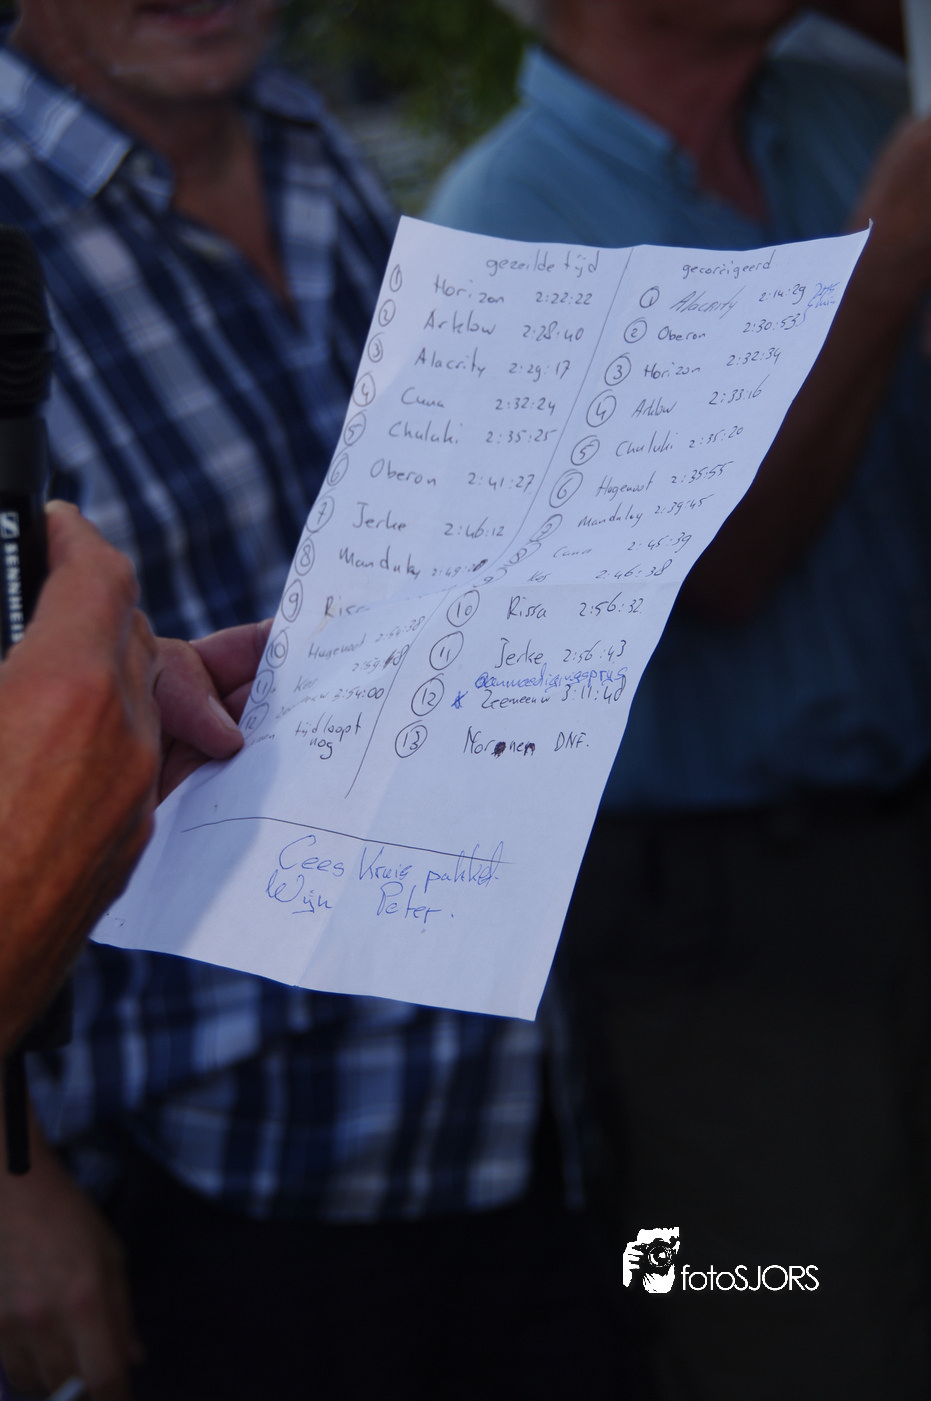 gezeilde tijd
1 Horizon 2:22:22
2 Arklow 2:28:40
3 Alacrity 2:29:17
4 Cuna 2:32:24
5 Chuluki 2:35:25
6 Oberon 2:41:27
7 Jerke 2:46:12
8 Manduley
9
10 Hagenoot 2:54:38
11 Kor
12 3:54:00
tijd loopt
nog
gecorrigeerd
1 Alacrity 2:14:29
2 Oberon 2:30:53
3 Horizon 2:32:34
4 Arklow 2:33:16
5 Chuluki 2:35:20
6 Hagenoot 2:35:55
7 Mandalay 2:39:45
8 Cuna 2:45:39
9 Kor 2:46:38
10 Rissa 2:56:32
11 Jerke 2:56:43
aanmoedigingsprijs
12 Zeemeeuw 3:11:40
13 Nornen DNF.
Cees Kruis pakket
Wijn Peter.
SENNHEIS
fotoSJORS